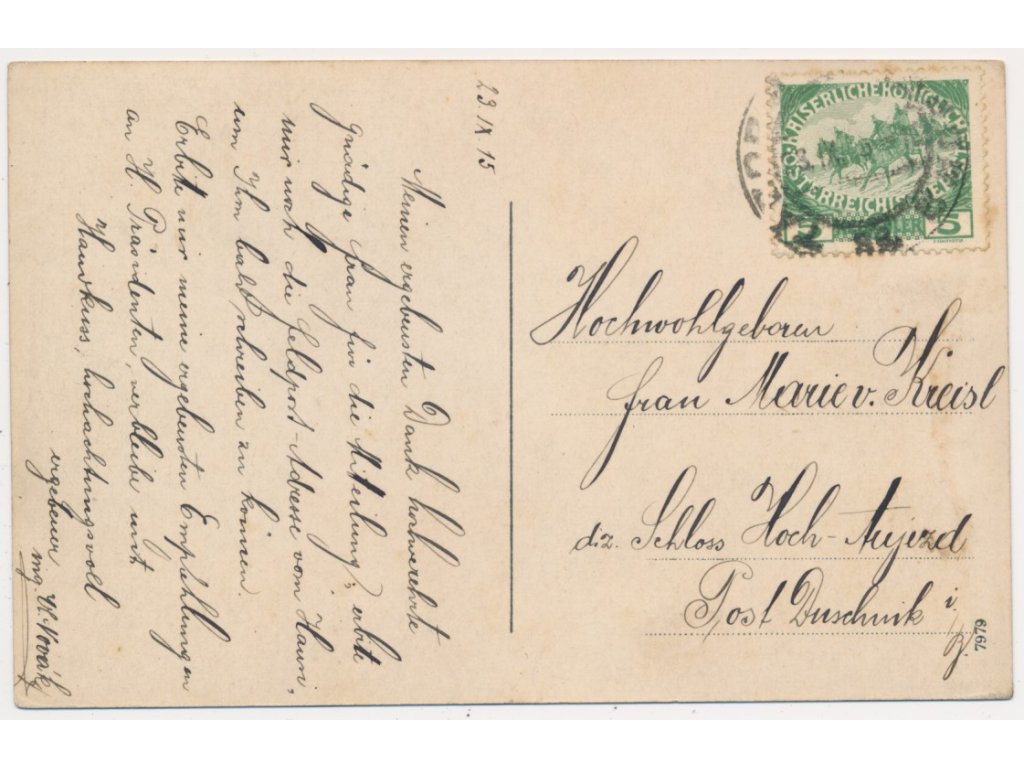 23. IX 15
Meinen ergebensten Dank hochverehrte
gnädige frau für die Mitteilung, erbite
mir noch die feldpost-Adresse vom Hann,
um Ihm bald schreiben zu können.
Erbite mir meine ergebensten Empfehlungen
an H. Präsidenten, verbleibe mit
Handkuss, hochachtungsvoll
ergebener
Novák
KAISERLICHE KÖNIGLICHE
ÖSTERREICHISCHE POST
5 5
Hochwohlgeboren
frau Marie v. Kreisl
dz. Schloss Hoch-Aujezd
Post Duschnik i/B.
7979